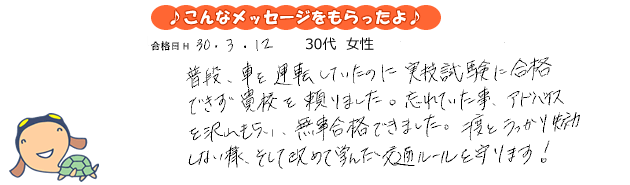 ♪こんなメッセージをもらったよ♪
合格日 H 30.3.12 30代 女性
普段、車を運転していたのに実技試験に合格
できず貴校を頼りました。忘れていた事、アドバイス
を沢山もらい、無事合格できました。二度とうっかり失効
しない様、そして改めて学んだ交通ルールを守ります!